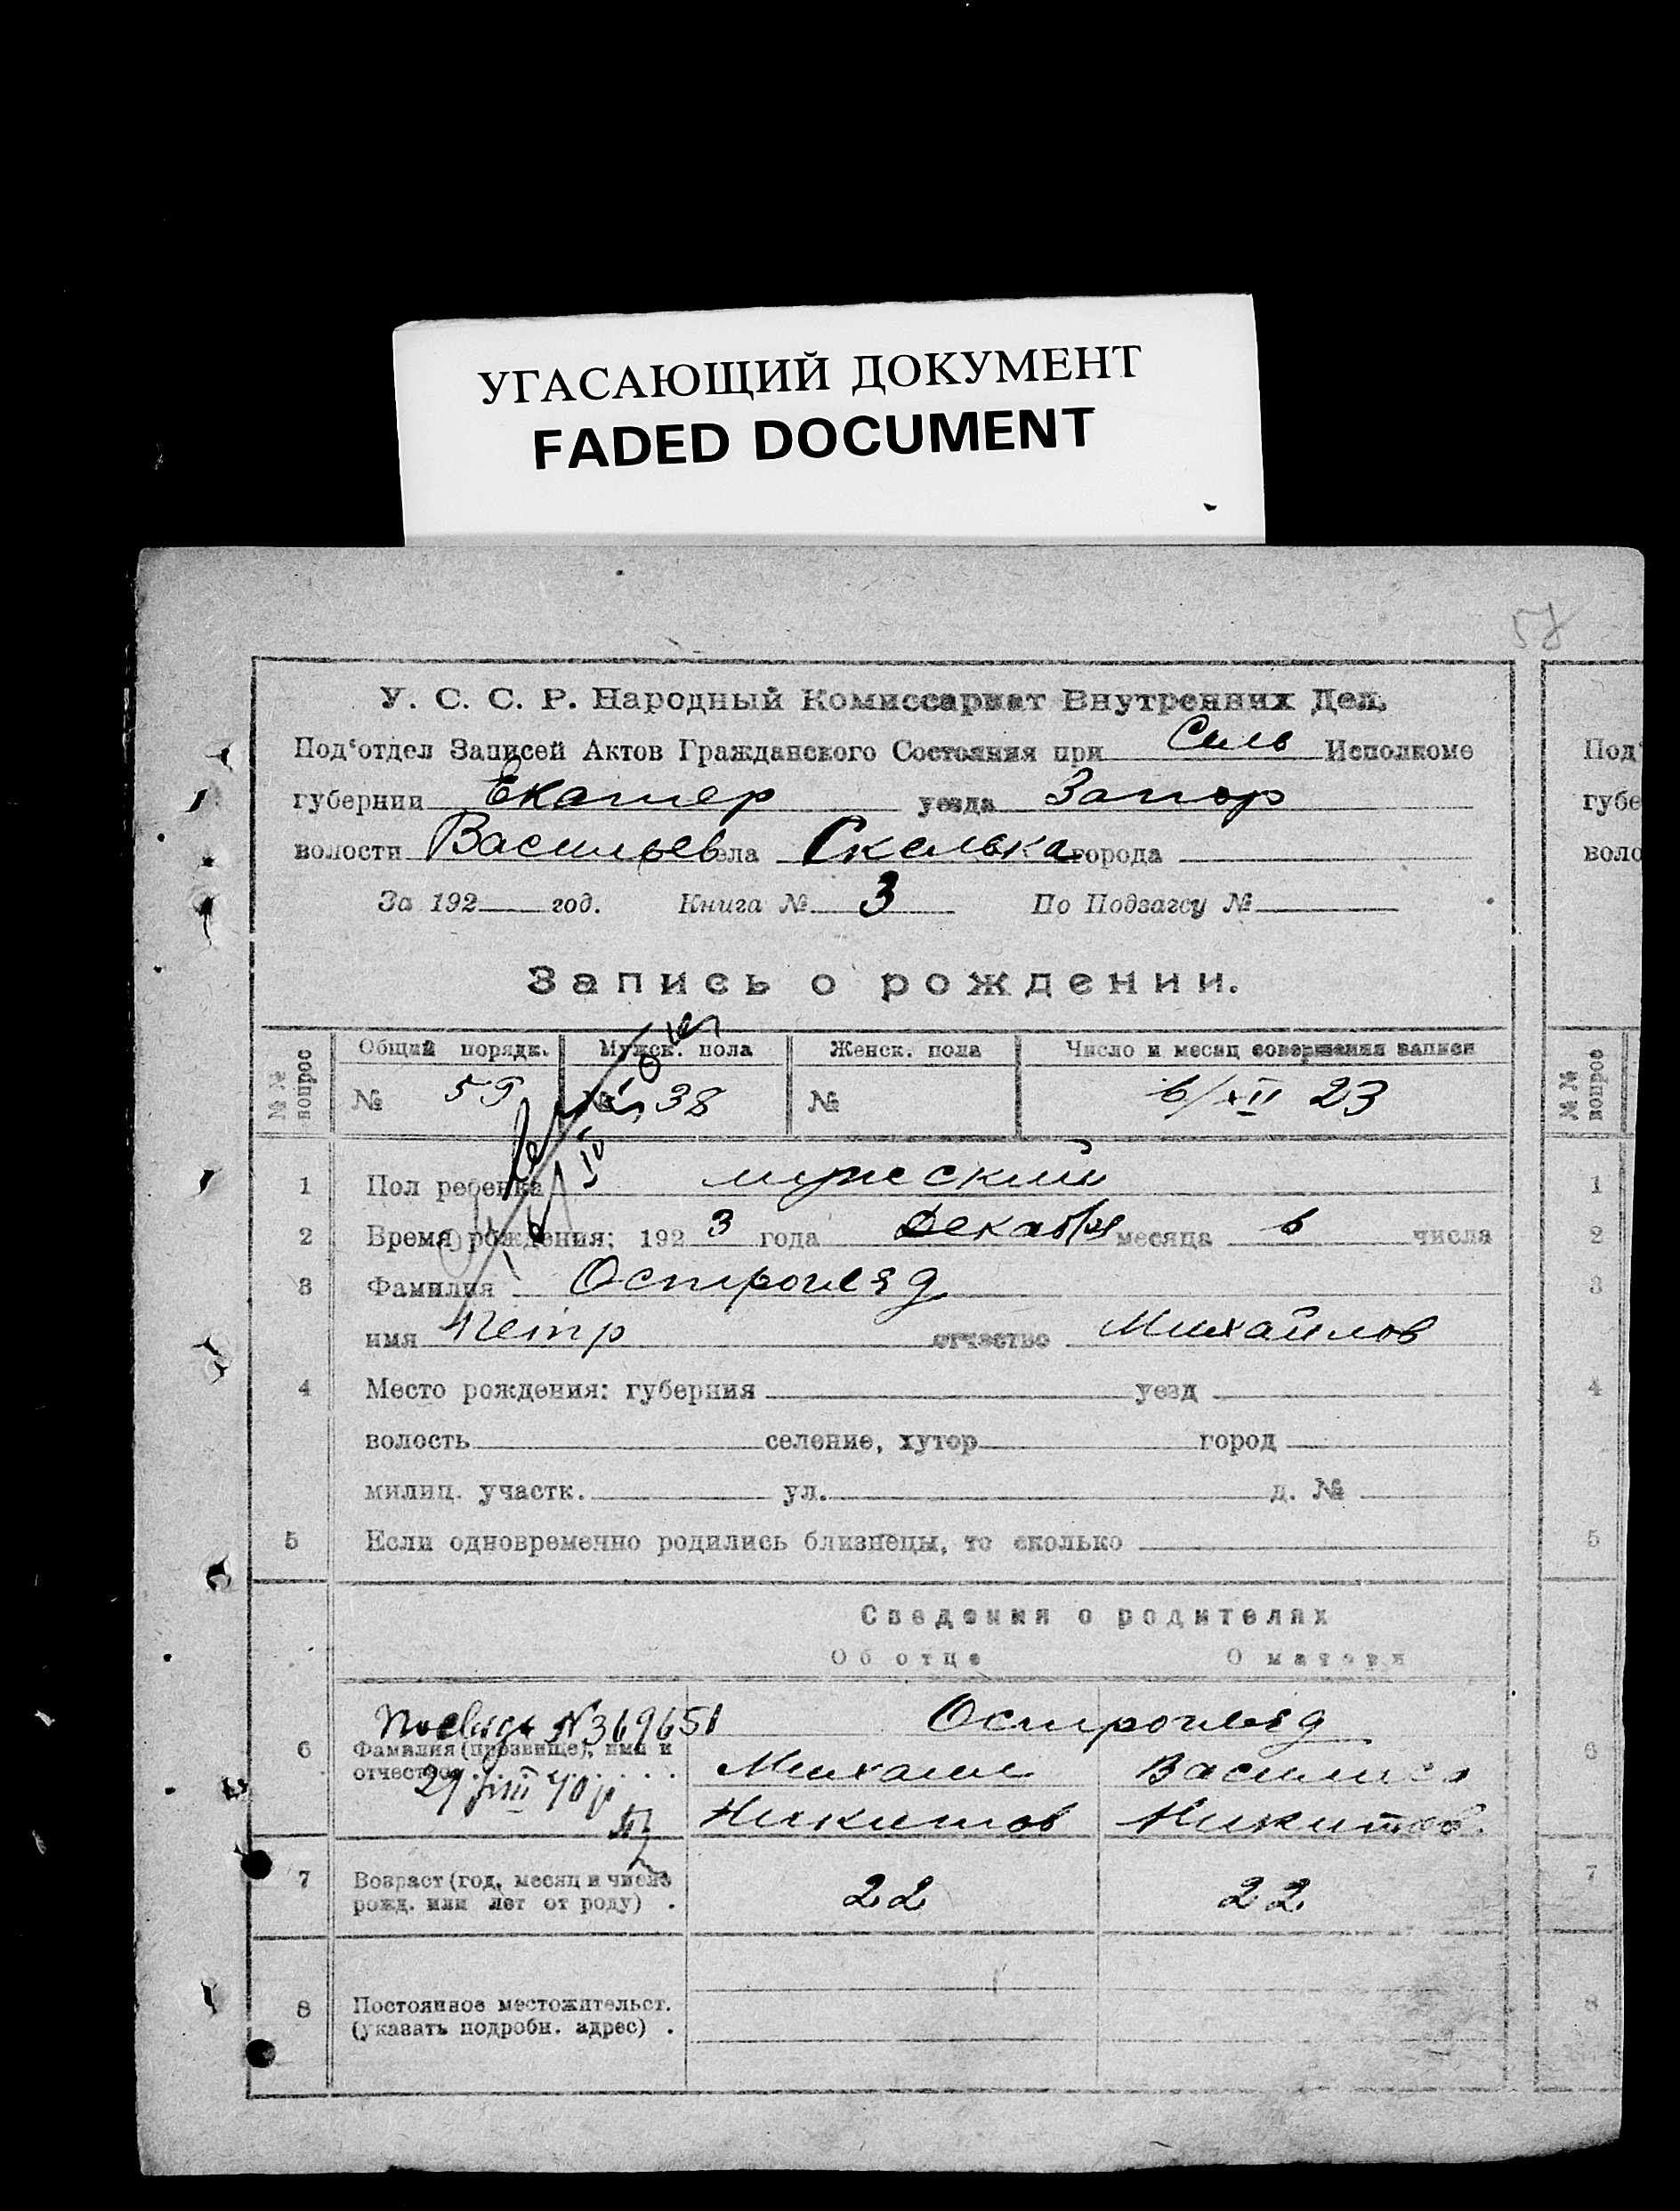 УГАСАЮЩИЙ ДОКУМЕНТ
FADED DOCUMENT
У. С. С. Р. Народный Комиссариат Внутренних Дел.
Под‘отдел Записей Актов Гражданского Состояния при Силь Исполкоме
губернии Екатер уезда Запор
волости Васильев ела Скелька города
За 192 год. Книга № 3 По Подзагсу №
Запись о рождении.
№№ вопрос
Общий порядк. Мужск. пола Женск. пола Число и месяц совершения записи
№ 59 № 38 № 6/XII 23
1 Пол ребенка мужеский
2 Время рождения: 192 3 года Декабря месяца 6 числа
3 Фамилия Остропляд
имя Петр отчество Михайлов
4 Место рождения: губерния уезд
волость селение, хутор город
милиц. участк. ул. д. №
5 Если одновременно родились близнецы, то сколько
Сведения о родителях
Об отце О матери
N369651 Остропляд
6 Фамилия (прозвище), имя и отчество Михаил Василиса
29/VIII 40 р Никитов Никитов.
7 Возраст (год, месяц и число рожд. или лет от роду) . 22 22
8 Постоянное местожительст. (указать подробн. адрес) .
Под‘
губе
воло
№№ вопрос
1
2
3
4
5
6
7
8